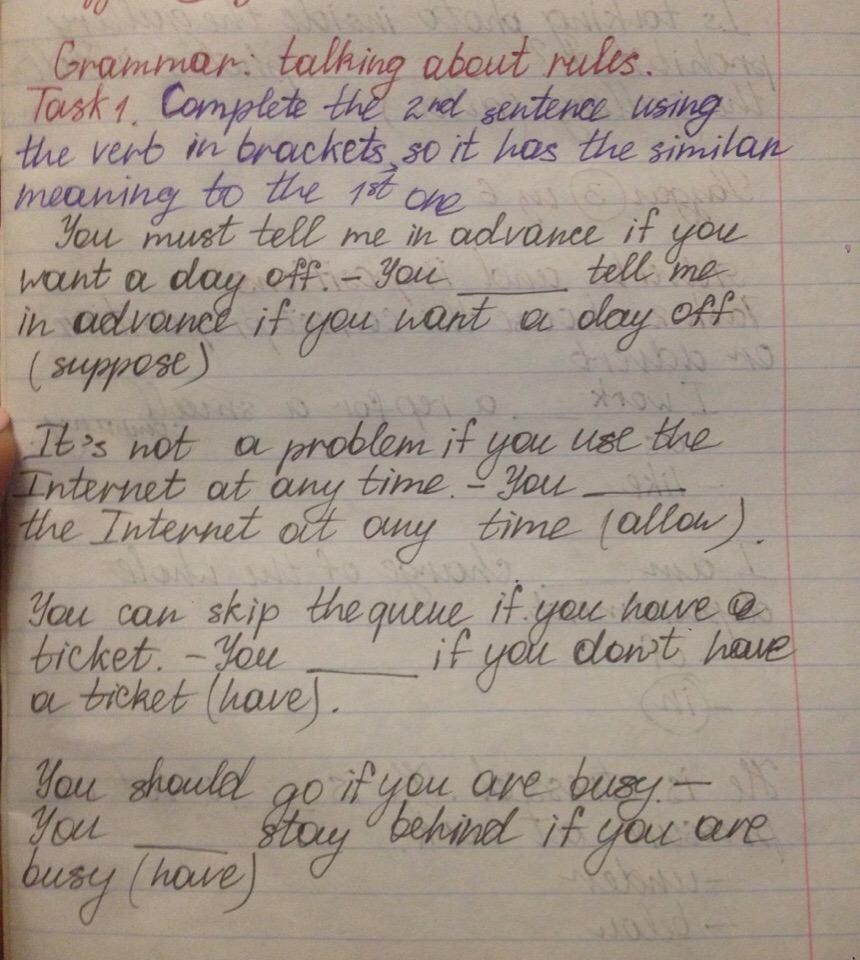 Grammar: talking about rules.
Task 1. Complete the 2nd sentence using
the verb in brackets, so it has the similar
meaning to the 1st one
You must tell me in advance if you
want a day off. – You ______ tell me
in advance if you want a day off
(suppose)
It's not a problem if you use the
Internet at any time. – You ______
the Internet at any time (allow).
You can skip the queue if you have a
ticket. – You ______ if you don't have
a ticket (have).
You should go if you are busy. –
You ______ stay behind if you are
busy (have)